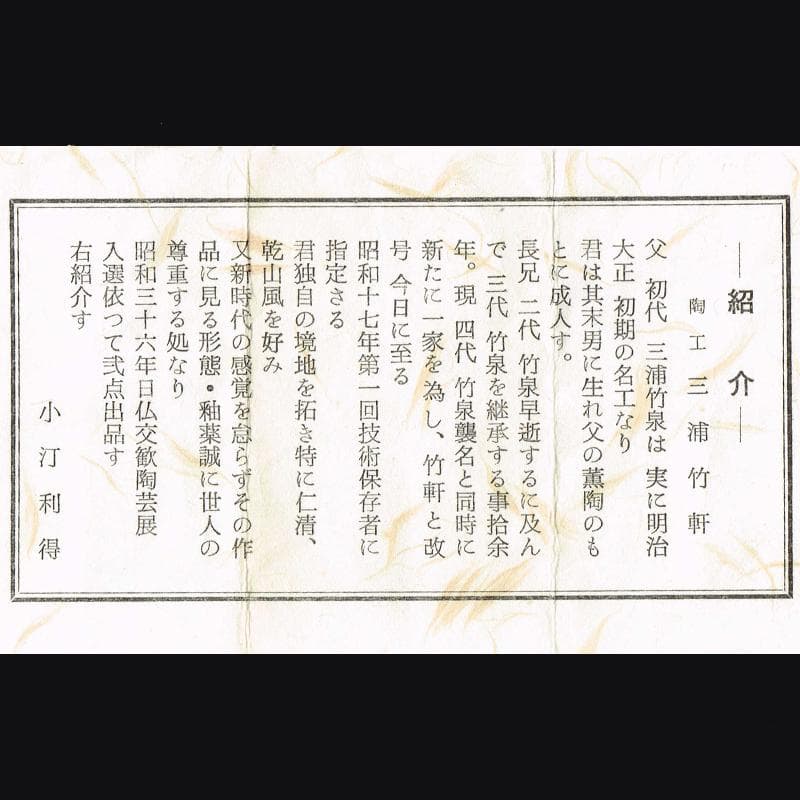 ―紹介―
陶工 三浦竹軒
父 初代 三浦竹泉は 実に明治
大正 初期の名工なり
君は其末男に生れ父の薫陶のも
とに成人す。
長兄 二代 竹泉早逝するに及ん
で 三代 竹泉を継承する事拾余
年。現 四代 竹泉襲名と同時に
新たに一家を為し、竹軒と改
号 今日に至る
昭和十七年第一回技術保存者に
指定さる
君独自の境地を拓き特に仁清、
乾山風を好み
又新時代の感覚を怠らずその作
品に見る形態・釉薬誠に世人の
尊重する処なり
昭和三十六年日仏交歓陶芸展
入選依つて弐点出品す
右紹介す
小汀利得